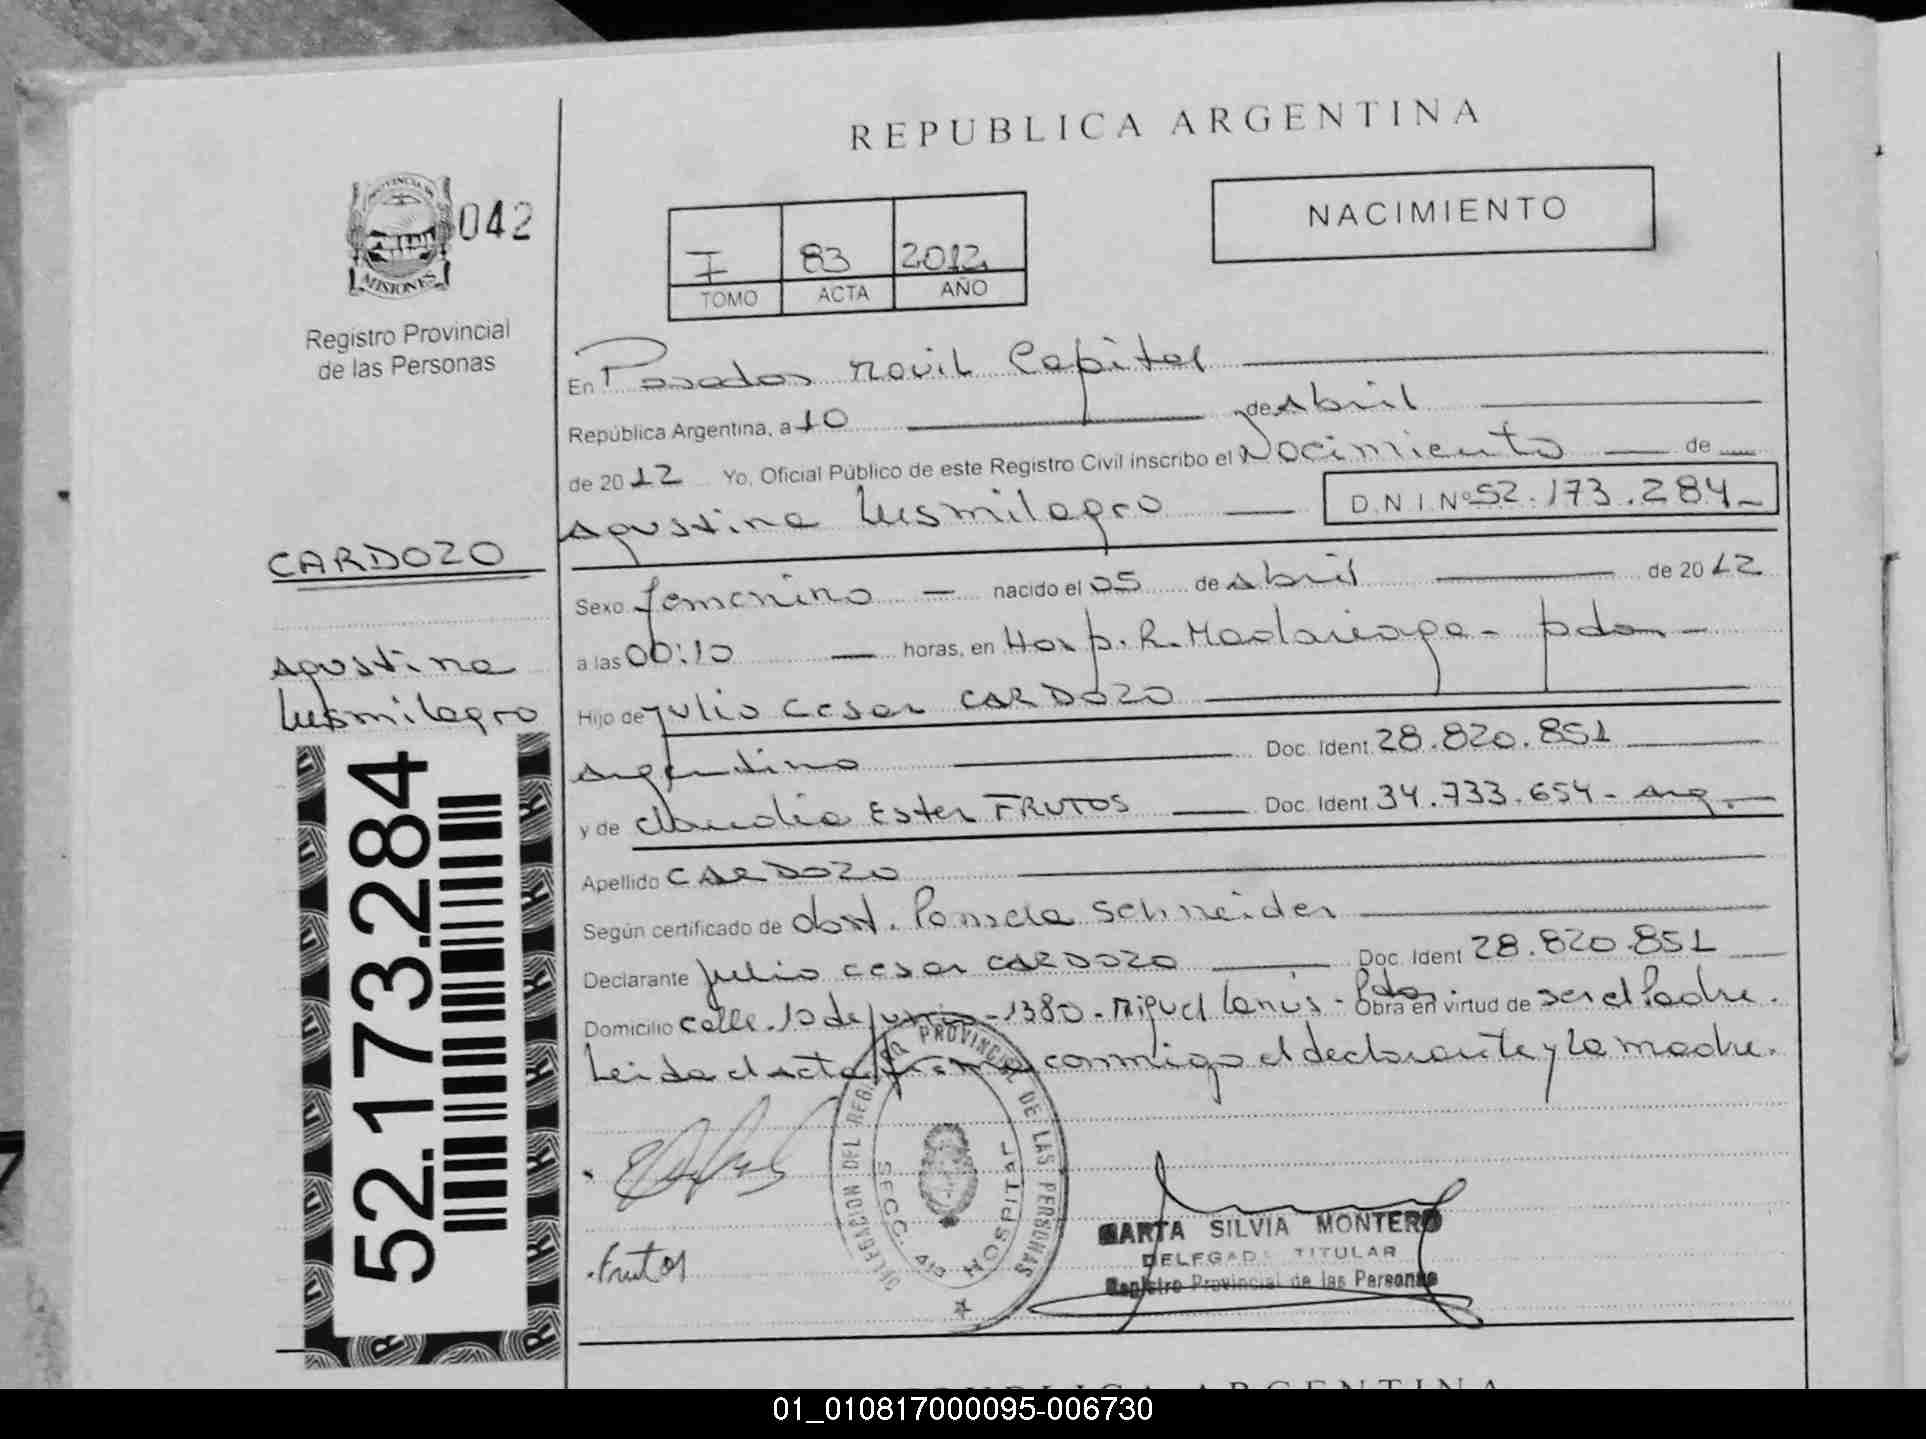 REPUBLICA ARGENTINA
NACIMIENTO
PROVINCIA DE
MISIONES
042
Registro Provincial
de las Personas
I 83 2012
TOMO ACTA AÑO
En Posadas Movil Capital
República Argentina, a 10 de Abril
de 2012 Yo, Oficial Público de este Registro Civil inscribo el Nacimiento de
Agustina Lusmilagro D.N.I.Nº 52.173.284
CARDOZO
Agustina
Lusmilagro
52.173.284
Sexo femenino nacido el 05 de Abril de 2012
a las 00:10 horas, en Hosp. R. Madariaga - pdas -
Hijo de Julio Cesar CARDOZO
Argentino Doc. Ident. 28.820.851
y de Claudia Ester FRUTOS Doc. Ident. 34.733.654 - Arg.
Apellido CARDOZO
Según certificado de Obst. Pamela Schneider
Declarante Julio Cesar CARDOZO Doc. Ident 28.820.851
Domicilio calle 10 de junio - 1380 - Miguel Lanús - Pdas. Obra en virtud de ser el Padre.
Leida el acta firma conmigo el declarante y la madre.
DELEGACION DEL REGISTRO PROVINCIAL DE LAS PERSONAS
SECC. HOSPITAL
Frutos
MARTA SILVIA MONTERO
DELEGADA TITULAR
Registro Provincial de las Personas
REPUBLICA ARGENTINA
01_010817000095-006730